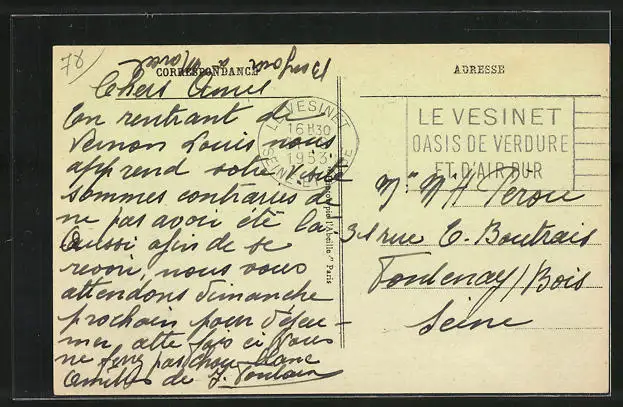 78)
Bonjour à Marcel
CORRESPONDANCE
Chers Amis
En rentrant de
Vernon Louis nous
apprend votre visite
sommes contraries de
ne pas avoir été la.
Aussi afin de se
revoir, nous vous
attendons dimanche
prochain pour déjeu-
ner cette fois ci vous
ne ferez pas chou blanc
Amitiés de
ADRESSE
LE VESINET
16H30
1953
SEINE-ET-OISE
LE VESINET
OASIS DE VERDURE
ET D'AIR PUR
Mr Mme Perou
31 rue E. Boutrais
Fontenay/Bois
Seine
"l'Abeille" Paris